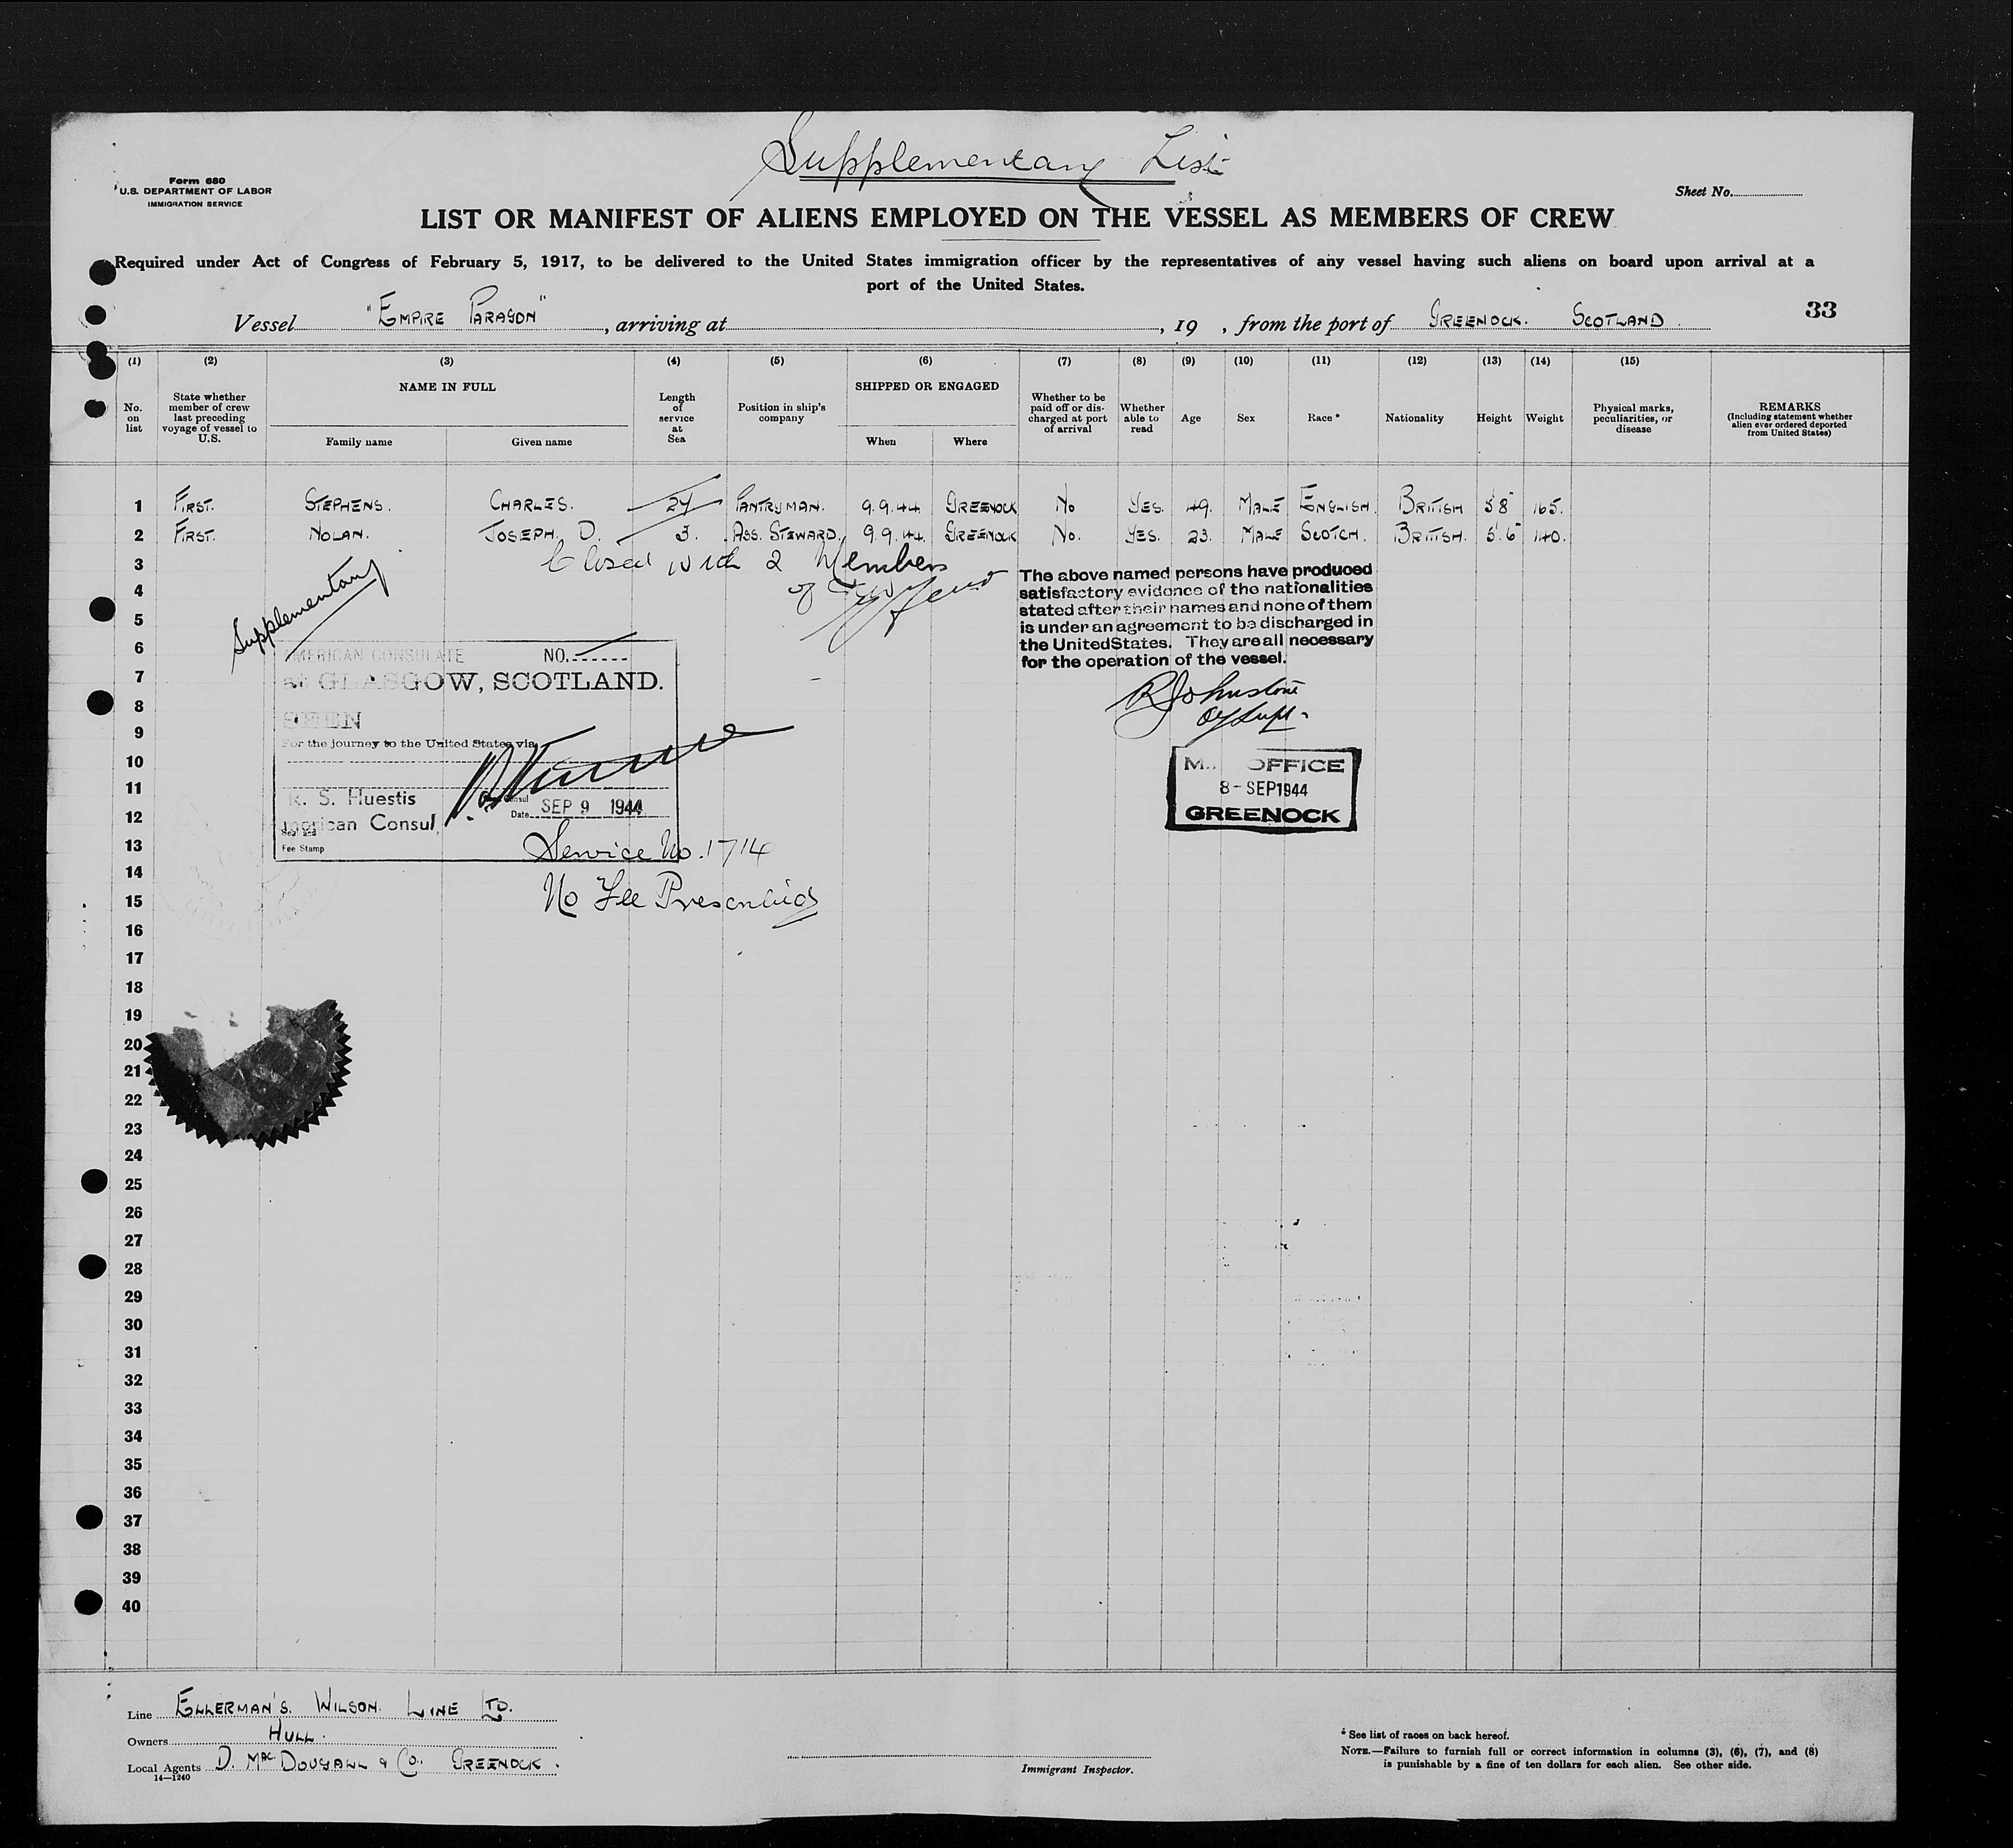 Supplementary List
Form 680
U.S. DEPARTMENT OF LABOR
IMMIGRATION SERVICE
Sheet No.
LIST OR MANIFEST OF ALIENS EMPLOYED ON THE VESSEL AS MEMBERS OF CREW
Required under Act of Congress of February 5, 1917, to be delivered to the United States immigration officer by the representatives of any vessel having such aliens on board upon arrival at a
port of the United States.
Vessel "EMPIRE PARAGON", arriving at , 19 , from the port of GREENOCK. SCOTLAND. 33
(1) (2) (3) (4) (5) (6) (7) (8) (9) (10) (11) (12) (13) (14) (15)
No. on list
State whether member of crew last preceding voyage of vessel to U.S.
NAME IN FULL
Family name
Given name
Length of service at Sea
Position in ship's company
SHIPPED OR ENGAGED
When
Where
Whether to be paid off or discharged at port of arrival
Whether able to read
Age
Sex
Race *
Nationality
Height
Weight
Physical marks, peculiarities, or disease
REMARKS
(Including statement whether alien ever ordered deported from United States)
1 FIRST. STEPHENS. CHARLES. 24 PANTRYMAN. 9.9.44 GREENOCK No YES. 49. MALE ENGLISH. BRITISH 5'8" 165.
2 FIRST. NOLAN. JOSEPH. D. 3. ASS. STEWARD. 9.9.44. GREENOCK No. YES. 23. MALE SCOTCH. BRITISH. 5'.6" 140.
3
Closed with 2 Members
of
4
5
6
7
8
9
10
11
12
13
14
15
16
17
18
19
20
21
22
23
24
25
26
27
28
29
30
31
32
33
34
35
36
37
38
39
40
Supplementary
The above named persons have produced
satisfactory evidence of the nationalities
stated after their names and none of them
is under an agreement to be discharged in
the United States. They are all necessary
for the operation of the vessel.
RJohnstone
AMERICAN CONSULATE NO.
at GLASGOW, SCOTLAND.
SEEN
For the journey to the United States via
R. S. Huestis
American Consul
Consul
Date SEP 9 1944
Seal and
Fee Stamp
OFFICE
8-SEP1944
GREENOCK
Service No. 1714
No Fee Prescribed
Line ELLERMAN'S. WILSON. LINE LTD.
Owners HULL.
Local Agents D. MacDOUGALL & Co. GREENOCK.
14—1240
Immigrant Inspector.
* See list of races on back hereof.
NOTE.—Failure to furnish full or correct information in columns (3), (6), (7), and (8)
is punishable by a fine of ten dollars for each alien. See other side.